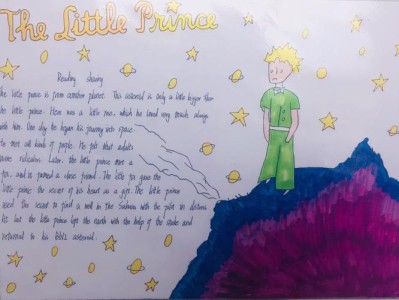 The Little Prince
Reading sharing
the little prince is from another planet. This asteroid is only a little bigger than
the little prince. Here was a little rose, which he loved very much, always
with him. One day he began his journey into space
to meet all kinds of people. He felt that adults
were ridiculous. Later, the little prince met a
fox and is formed a close friend. The little fox gave the
little prince the secret of his heart as a gift. The little prince
used the secret to find a well in the Sahara with the pilot in distress
but the little prince left the earth with the help of the snake and
returned to his B612 asteroid.